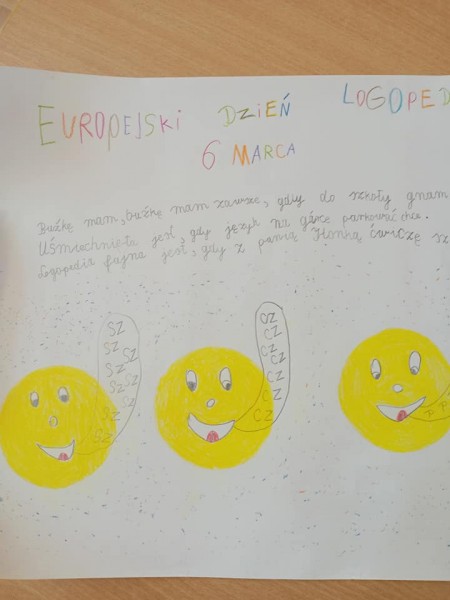 EUROPEJSKI DZIEŃ LOGOPED
6 MARCA
Buźkę mam, buźkę mam zawsze, gdy do szkoły gnam
Uśmiechnięta jest, gdy język na górze parkować chce.
Logopedia fajna jest, gdy z panią Iloną ćwiczę sz
SZ
SZ
SZ
SZ
SZ
SZ
SZ
SZ
CZ
CZ
CZ
CZ
CZ
CZ
CZ
P P